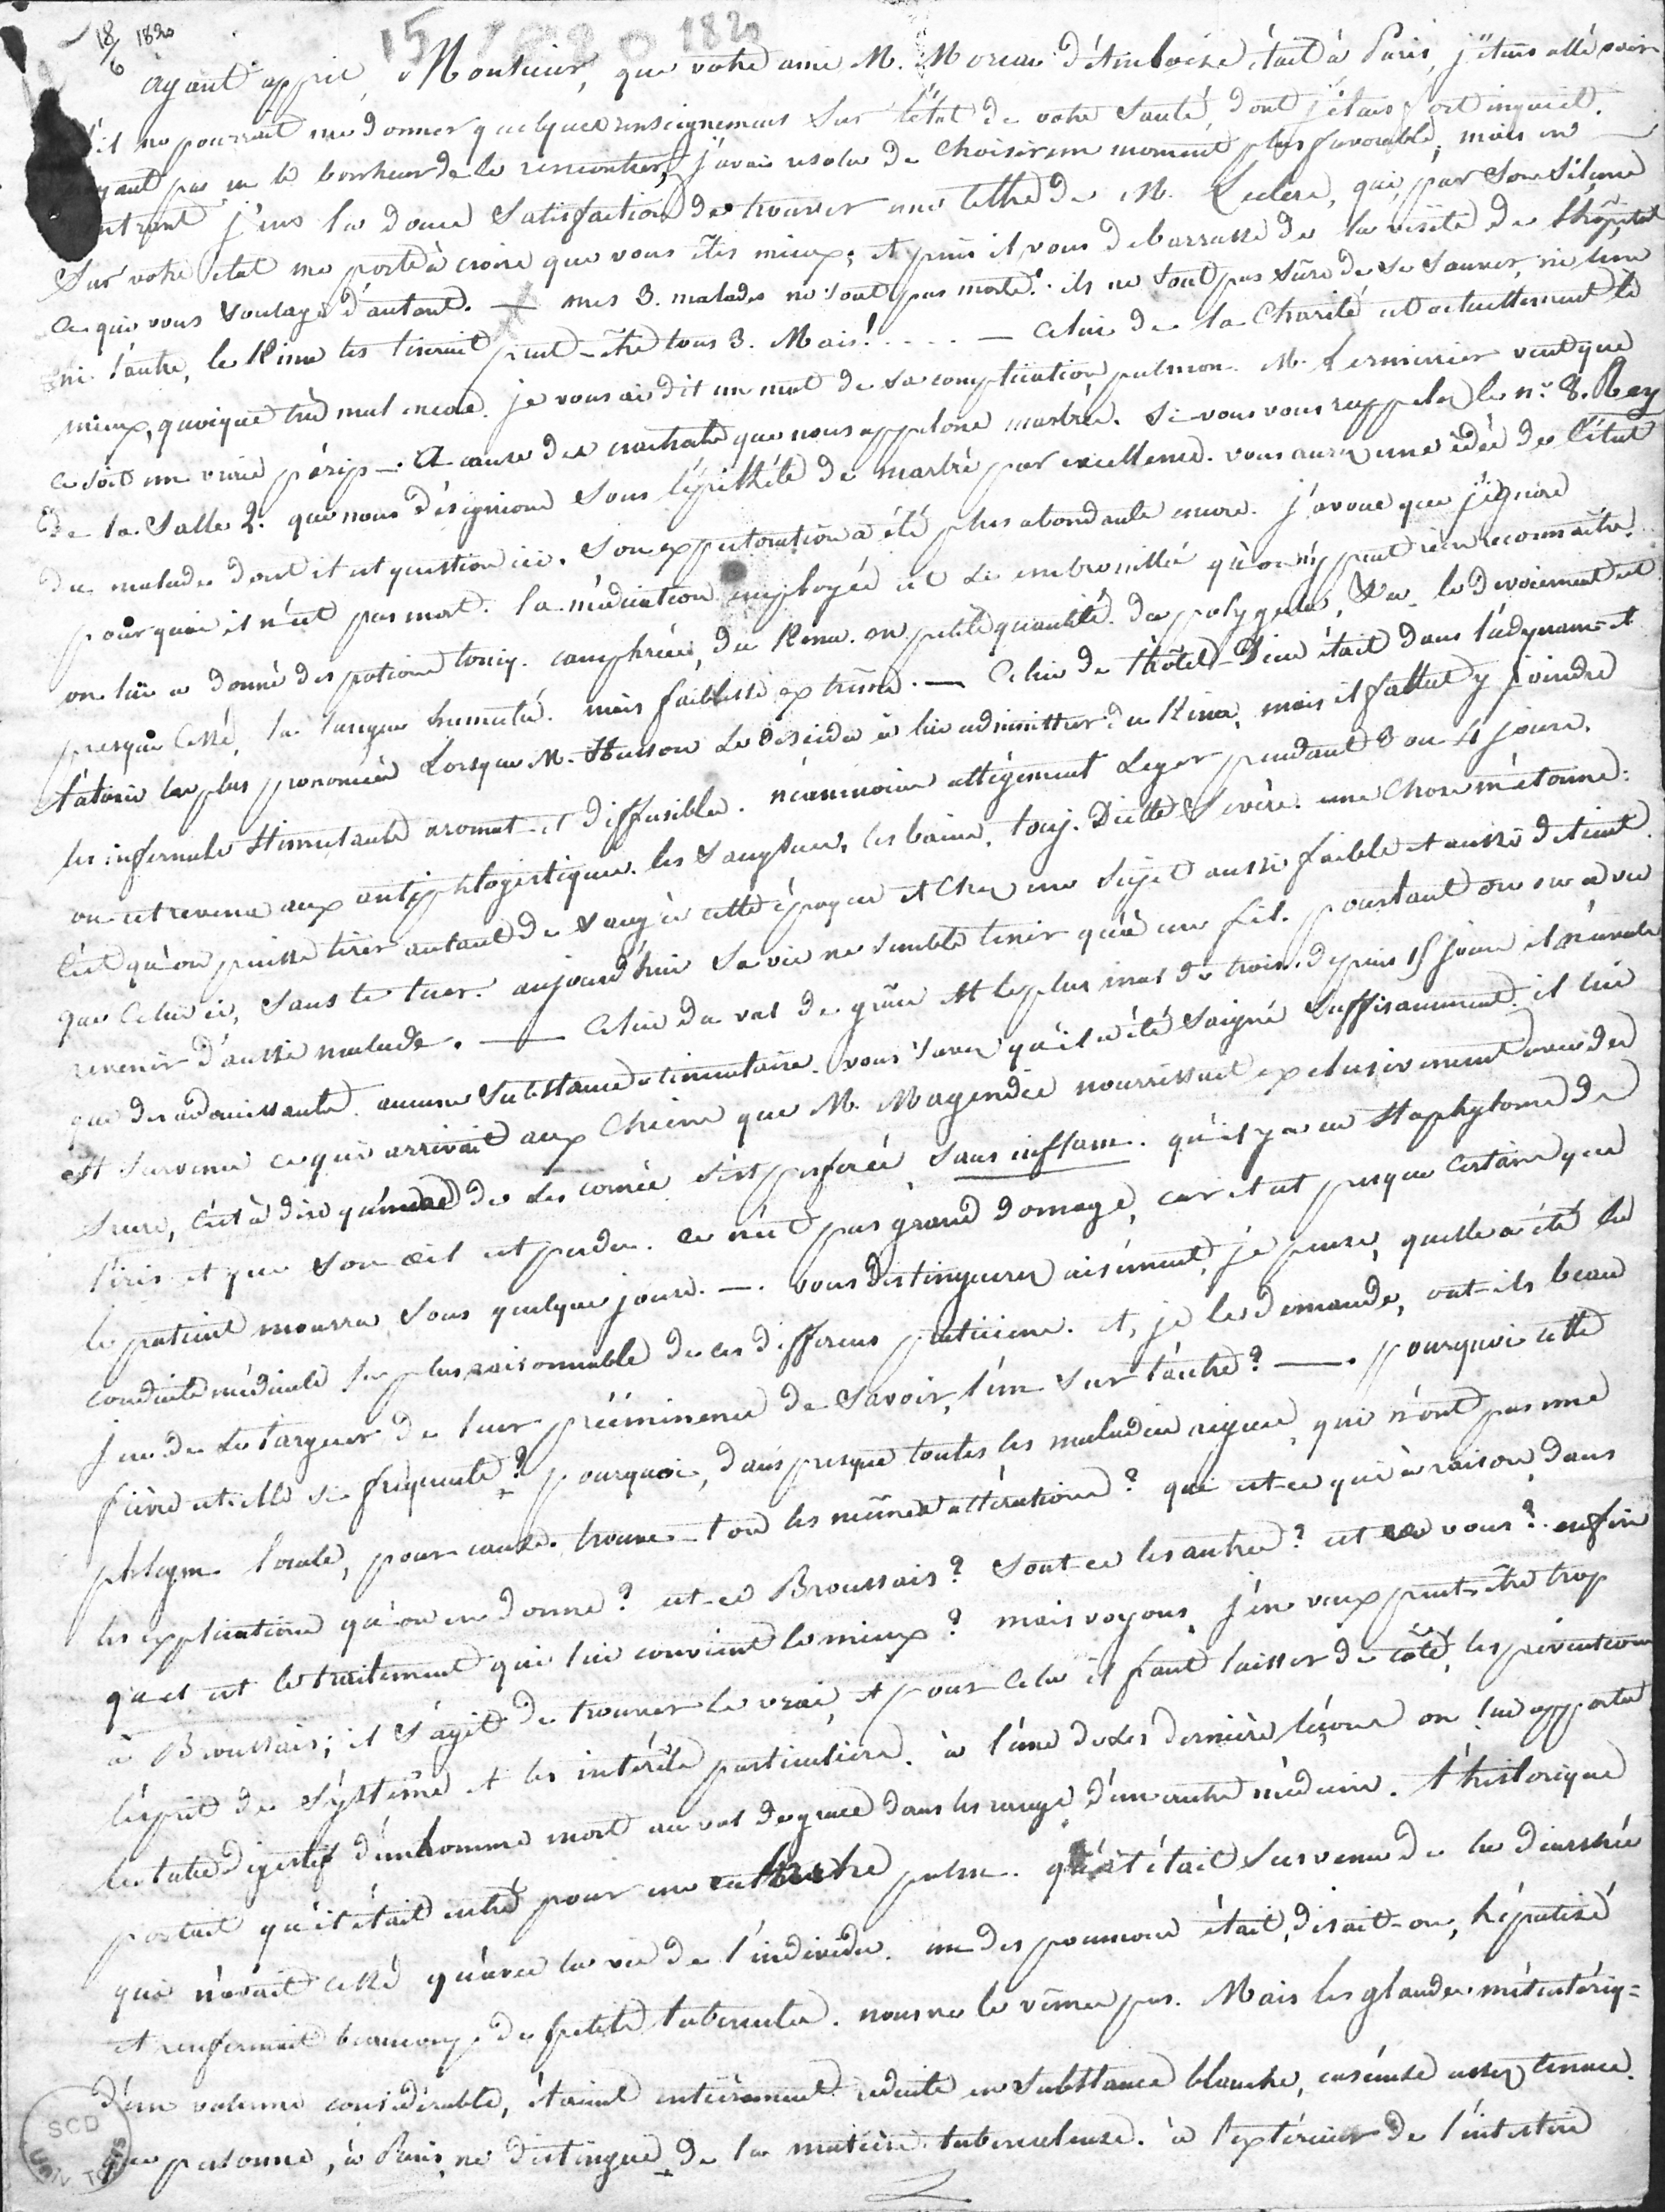 18/6 1820
15 1820 1820
ayant appris, Monsieur, que votre ami M. Moreau d'Amboise, était à Paris, j'étais allé voir
s'il ne pourrait me donner quelques renseignemens sur l'état de votre Santé, dont j'étais fort inquiet.
ayant pas eu le bonheur de le rencontrer, j'avais resolu de choisir un moment plus favorable, mais en
rentrant j'eus la douce Satisfaction de trouver une lettre de M. Leclerc, qui, par Son Silence
Sur votre état me porte à croire que vous êtes mieux; et puis il vous debarrasse de la visite de l'hôpital
ce qui vous Soulage d'autant. — mes 3. malades ne sont pas morts. ils ne sont pas sûrs de se sauver, ni l'un
ni l'autre, le Kina les tuerait peut-être tous 3. Mais! .... — Celui de la Charité est actuellement le
mieux, quoique très mal encore. je vous ai dit un mot de sa complication pulmon. M. Lerminier veut que
ce soit une vraie périp—. A cause des crachats que nous appelons marbrés. Si vous vous rappelez le n°. 8. Rey
de la Salle 2. que nous désignions Sous l'épithète de marbré par excellence. vous aurez une idée de l'état
du malade dont il est question ici. Son expectoration a été plus abondante encore. j'avoue que j'ignore
pourquoi il n'est pas mort. la médication employée est si embrouillée qu'on n'y peut rien reconnaître.
on lui a donné des potions toniq. camphrées, du Kina. en petite quantité. du polygala, &a. le devoiement est
presque cessé, la langue humectée. mais faiblesse extrême. — Celui de l'hôtel-Dieu était dans l'adynam- et
l'ataxie les plus prononcées Lorsque M. Husson Se décida à lui administrer du Kina, mais il fallut y joindre
les infernals Stimulants aromat- et diffusibles. néanmoins allégement Leger pendant 3 ou 4 jours.
on est revenu aux antiphlogistiques. les Sangsues, les bains, touj. Diète Sévère. une chose m'étonne:
c'est qu'on puisse tirer autant de Sang à cette époque et chez un Sujet aussi faible et aussi détérioré
que Celui ci, Sans le tuer. aujourd'hui Sa vie ne semble tenir qu'à un fil. pourtant on en a vu
revenir d'aussi malades. — Celui du val de grâce est le plus mal des trois. depuis 15 jours il n'avale
que des adoucissants. aucune Substance alimentaire. vous savez qu'il a été Saigné Suffisamment. il lui
est Survenu ce qui arrivait aux Chiens que M. Magendie nourrissait exclusivement avec du
Sucre, c'est à dire qu'une de Ses cornées s'est perforée, Sans inflam. qu'il y a eu Staphylome de
l'iris et que Son œil est perdu. ce n'est pas grand domage, car il est presque certain que
le patient mourra Sous quelques jours. —. vous distinguerez aisément, je pense, quelle a été la
conduite médicale la plus raisonnable de ces differens praticiens. et, je le demande, ont-ils beau
jeu de Se targuer de leur prééminence de Savoir, l'un Sur l'autre? —. pourquoi cette
fièvre est-elle si frequente? pourquoi, dans presque toutes les maladies aigues, qui n'ont pas une
phlegm. locale, pour cause. trouve-t-on les mêmes altérations? qui est-ce qui a raison dans
les explications qu'on en donne? est-ce Broussais? Sont-ce les autres? est-ce vous? enfin
quel est le traitement qui lui convient le mieux? mais voyons, j'en veux peut-être trop
à Broussais; il S'agit de trouver le vrai, et pour cela il faut laisser de côté, les préventions
l'esprit de Système et les intérêts particuliers. à l'une de Ses dernières leçons on lui apporta
le tube digestif d'un homme mort au val de grace dans les rangs d'un autre médecin. l'historique
portait qu'il était entré pour un catharrhe pulm. qu'il était Survenu de la diarrhée
qui n'avait cessé qu'avec la vie de l'individu. un des poumons était, disait-on, hépatisé
et renfermait beaucoup de petits tubercules. nous ne le vîmes pas. Mais les glandes mésentériq=
d'un volume considérable, étaient entièrement réduites en Substance blanche, caséeuse assez tenace.
que personne, à Paris, ne distingue de la matière tuberculeuse. à l'extérieur de l'intestin
SCD
UNIV TOURS